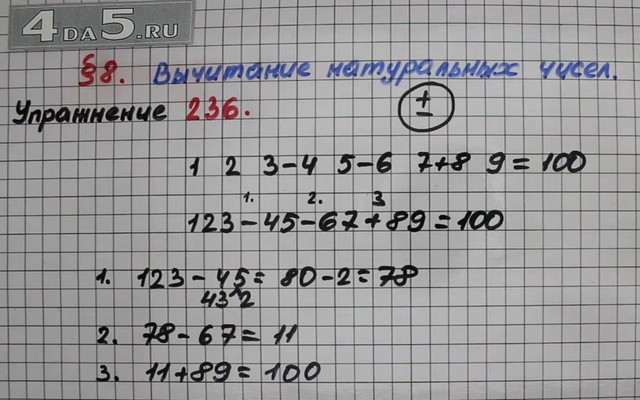 4ДА5.RU
§8. Вычитание натуральных чисел.
Упражнение 236.
+
−
1 2 3−4 5−6 7+8 9=100
1. 2. 3
123−45−67+89=100
1. 123−45=80−2=78
43 2
2. 78−67=11
3. 11+89=100